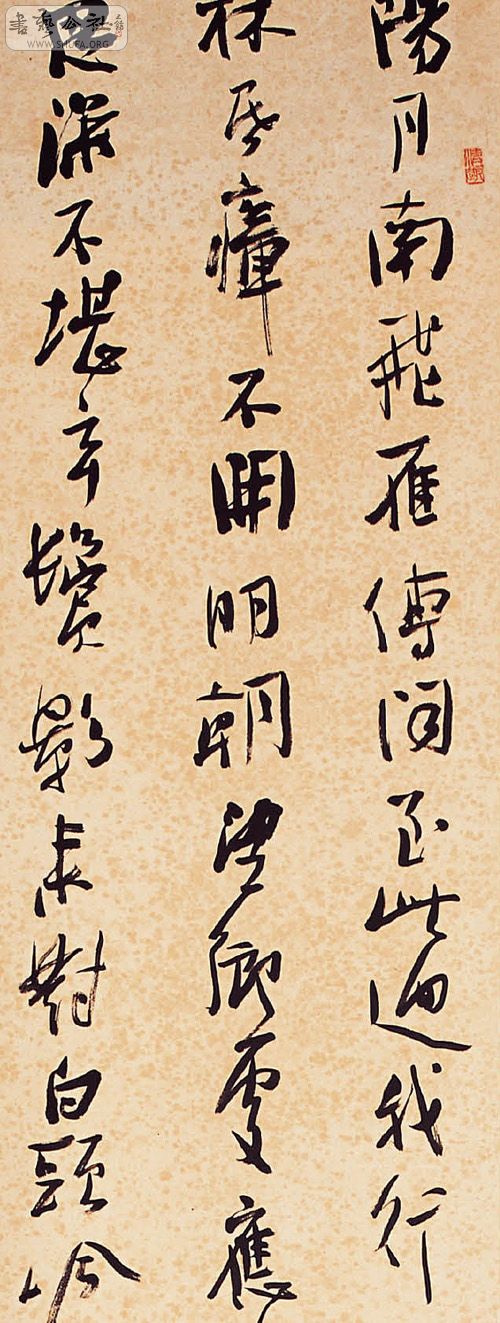 陽月南飛雁傳聞至此迴我行
林昏瘴不開明朝望鄉處應
思深不堪玄鬢影來對白頭吟
書藝公社
WWW.SHUFA.ORG